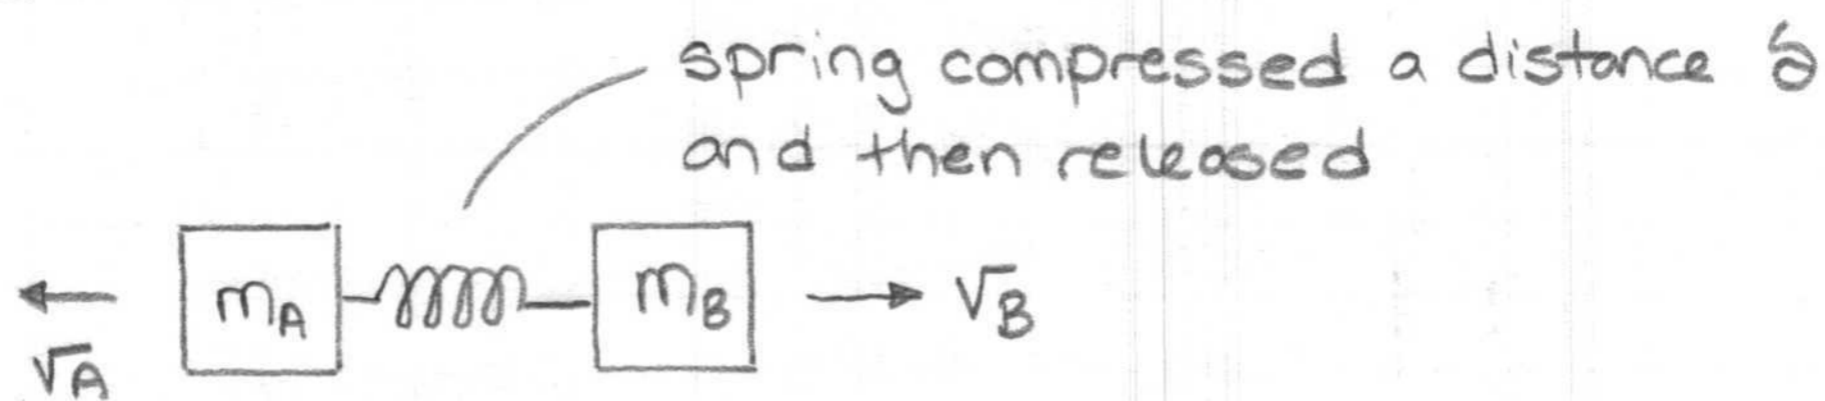 spring compressed a distance δ
and then released
mA mB vB
vA